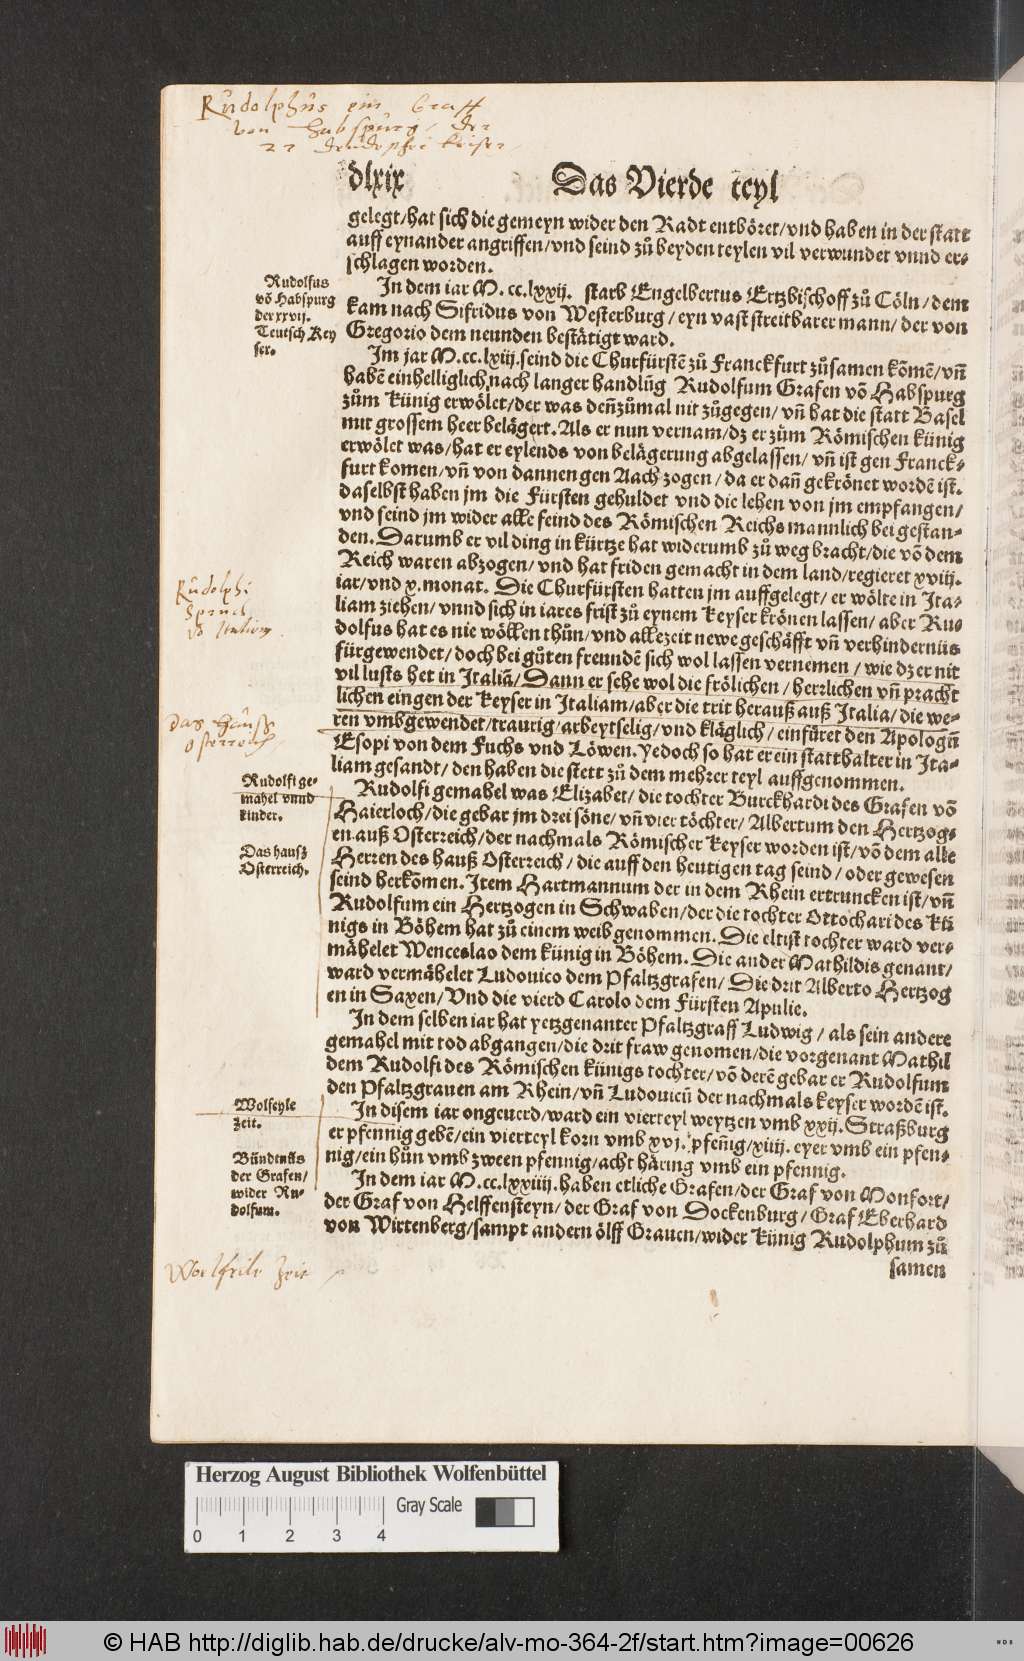 Rudolphus ein Graff
von Habspurg / der
dlxix
Das Vierde teyl
gelegt/hat sich die gemeyn wider den Radt entböret/vnd haben in der statt
auff eynander angriffen/vnd seind zů beyden teylen vil verwundet vnnd er⸗
schlagen worden.
In dem iar M. cc.lxxij. starb Engelbertus Ertzbischoff zů Cöln/dem
kam nach Sifridus von Westerburg/eyn vast streitbarer mann/der von
Gregorio dem neunden bestätigt ward.
Rudolfus
võ Habspurg
der xxvij.
Teutsch Key
ser.
Im jar M.cc.lxiij.seind die Churfürstẽ zů Franckfurt zůsamen kõmẽ/vñ
habẽ einhelliglich nach langer handlũg Rudolfum Grafen võ Habspurg
zům künig erwölet/der was deñzůmal nit zůgegen/vñ hat die statt Basel
mit grossem heer belägert. Als er nun vernam/dz er zům Römischen künig
erwölet was/hat er eylends von belägerung abgelassen/vñ ist gen Franck⸗
furt komen/vñ von dannen gen Aach zogen/da er dañ gekrönet wordẽ ist.
daselbst haben jm die Fürsten gehuldet vnd die lehen von jm empfangen/
vnd seind jm wider alle feind des Römischen Reichs mannlich bei gestan⸗
den. Darumb er vil ding in kürtze hat widerumb zů weg bracht/die võ dem
Reich waren abzogen/vnd hat friden gemacht in dem land/regieret xviij.
iar/vnd x.monat. Die Churfürsten hatten jm auffgelegt/er wölte in Ita⸗
liam ziehen/vnnd sich in iares frist zů eynem keyser krönen lassen/aber Ru⸗
dolfus hat es nie wöllen thůn/vnd allezeit newe geschäfft vñ verhindernüs
fürgewendet/doch bei gůten freundẽ sich wol lassen vernemen/wie dz er nit
vil lusts het in Italiã/Dann er sehe wol die frölichen/herrlichen vñ pracht
lichen eingen der keyser in Italiam/aber die trit herauß auß Italia/die we⸗
ren vmbgewendet/traurig/arbeytselig/vnd kläglich/einfüret den Apologũ
Esopi von dem Fuchs vnd Löwen. Yedoch so hat er ein statthalter in Ita⸗
liam gesandt/den haben die stett zů dem mehrer teyl auffgenommen.
Rudolphi
Spruch
võ Italien
Das Hauß
Osterreich
Rudolfi ge⸗
mahel vnnd
kinder.
Das hauß
Österreich.
Rudolfi gemahel was Elizabet/die tochter Burckhardi des Grafen võ
Haierloch/die gebar jm drei söne/vñ vier töchter/Albertum den Hertzog⸗
en auß Osterreich/der nachmals Römischer keyser worden ist/võ dem alle
Herren des hauß Osterreich/die auff den heutigen tag seind/oder gewesen
seind herkomen. Item Hartmannum der in dem Rhein ertruncken ist/vñ
Rudolfum ein Hertzogen in Schwaben/der die tochter Ottochari des Kü
nigs in Böhem hat zů einem weib genommen. Die eltist tochter ward ver⸗
mähelet Wenceslao dem künig in Böhem. Die ander Mathildis genant/
ward vermähelet Ludouico dem Pfaltzgrafen/Die drit Alberto Hertzog
en in Saxen/Vnd die vierd Carolo dem Fürsten Apulie.
In dem selben iar hat yetzgenanter Pfaltzgraff Ludwig/als sein andere
gemahel mit tod abgangen/die drit fraw genomen/die vorgenant Mathil
dem Rudolfi des Römischen künigs tochter/võ derẽ gebar er Rudolfum
den Pfaltzgrauen am Rhein/vñ Ludouicũ der nachmals keyser wordẽ ist.
Wolfeyle
zeit.
In disem iar ongeuerd/ward ein vierteyl weytzen vmb xxij. Straßburg
er pfennig gebẽ/ein vierteyl korn vmb xvj. pfeñig/xiiij. eyer vmb ein pfen⸗
nig/ein hůn vmb zween pfennig/acht häring vmb ein pfennig.
Bündtnüs
der Grafen/
wider Ru⸗
dolfum.
In dem iar M.cc.lxxiiij.haben etliche Grafen/der Graf von Monfort/
der Graf von Helffensteyn/der Graf von Dockenburg/Graf Eberhard
von Wirtenberg/sampt andern ölff Grauen/wider künig Rudolphum zů
samen
Woelfeile Zeit
Herzog August Bibliothek Wolfenbüttel
Gray Scale
0 1 2 3 4
© HAB http://diglib.hab.de/drucke/alv-mo-364-2f/start.htm?image=00626